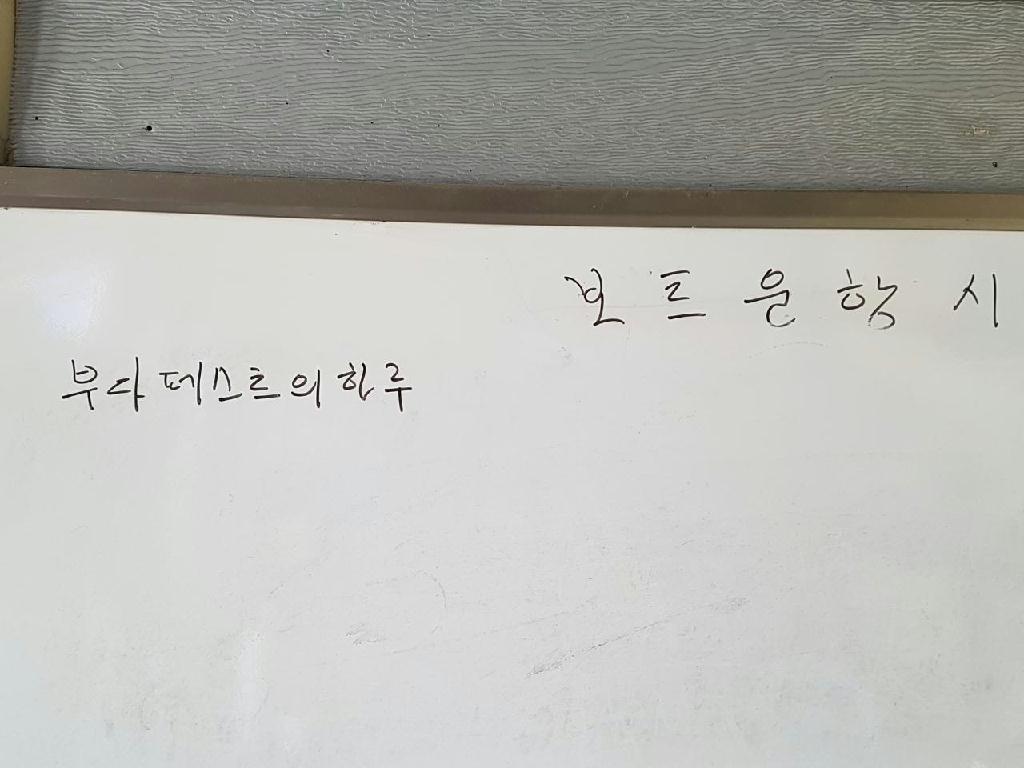 보트운항시
부다페스트의 하루